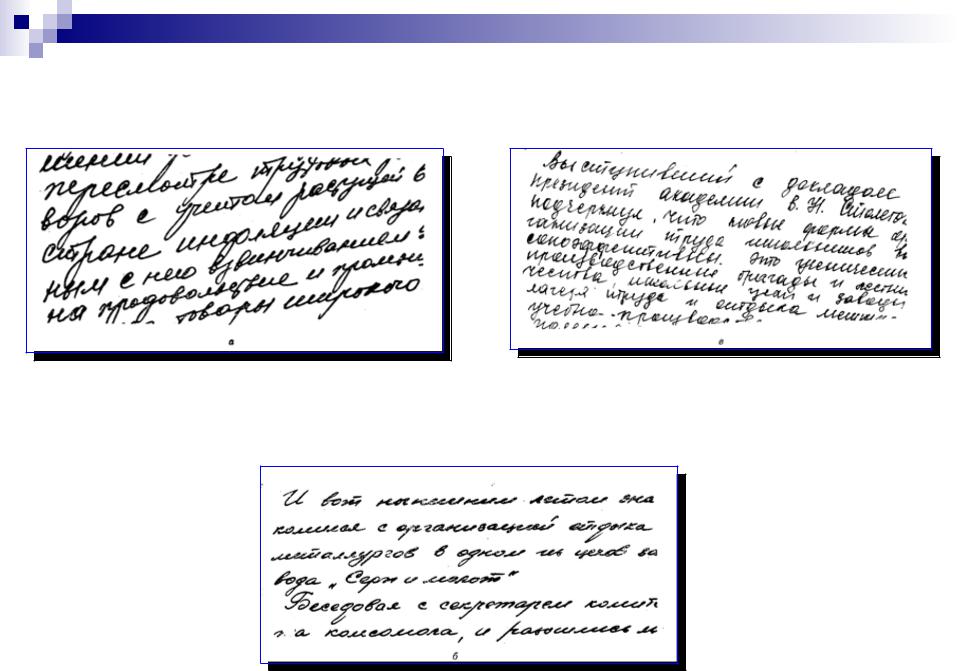 пересмотре трудовых
воров с учетом растущей в
стране инфляции и связан
ным с нею взвинчиванием
на продовольствие и промыш.
товары широкого
а
Выступивший с докладом
президент академии В. Н. Столетов
подчеркнул, что новые формы ор
ганизации труда школьников
Это ученические
производственные бригады и лесни
чества, школьные цехи и заводы
лагеря труда и отдыха
учебно-производств
в
И вот нынешним летом зна
комимся с организацией отдыха
металлургов в одном из цехов за
вода „Серп и молот"
Беседовал с секретарем комит
та комсомола, и
б